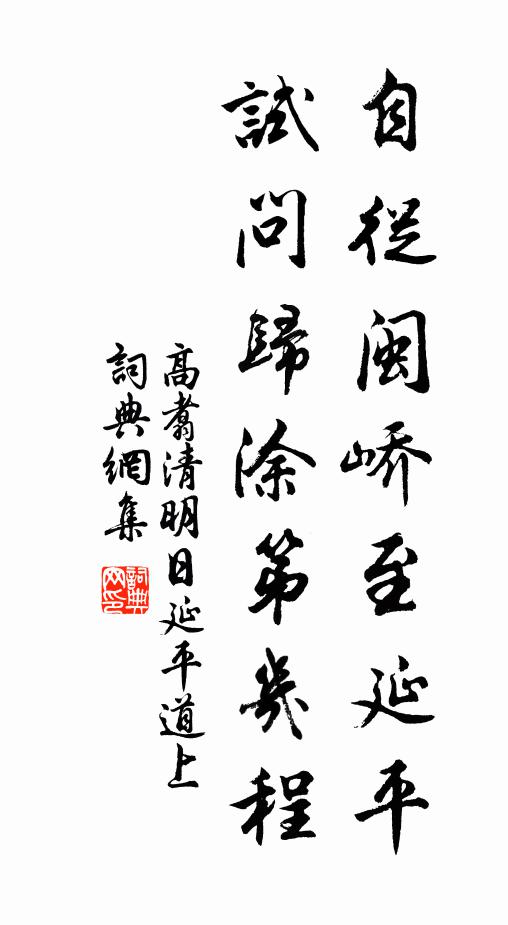 自從閩嶠至延平
試問歸涂第幾程
高翥清明日延平道上
詞典網集
詞典
网印